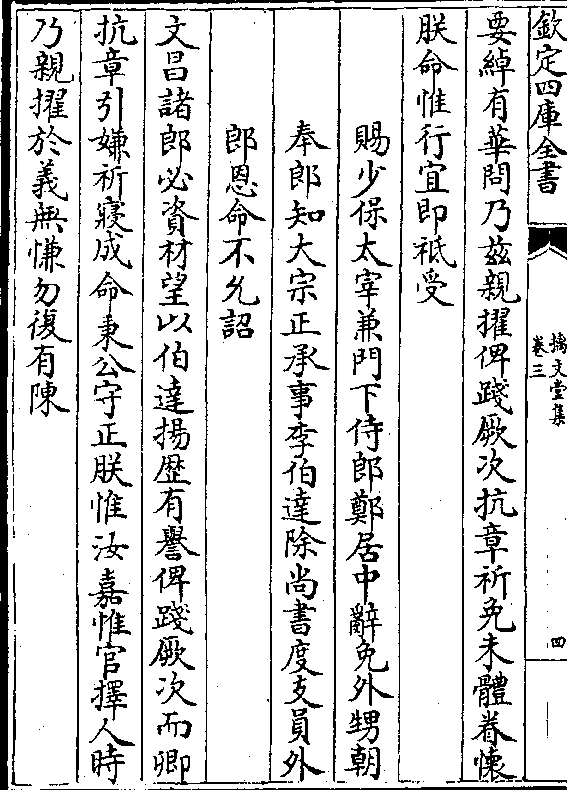 欽定四庫全書
摛文堂集
卷三
四
要綽有華問乃茲親擢俾踐厥次抗章祈免未體眷懷
朕命惟行宜即祗受
賜少保太宰兼門下侍郎鄭居中辭免外甥朝
奉郎知大宗正承事李伯達除尚書度支員外
郎恩命不允詔
文昌諸郎必資材望以伯達揚歷有譽俾踐厥次而卿
抗章引嫌祈寢成命秉公守正朕惟汝嘉惟官擇人時
乃親擢於義無慊勿復有陳